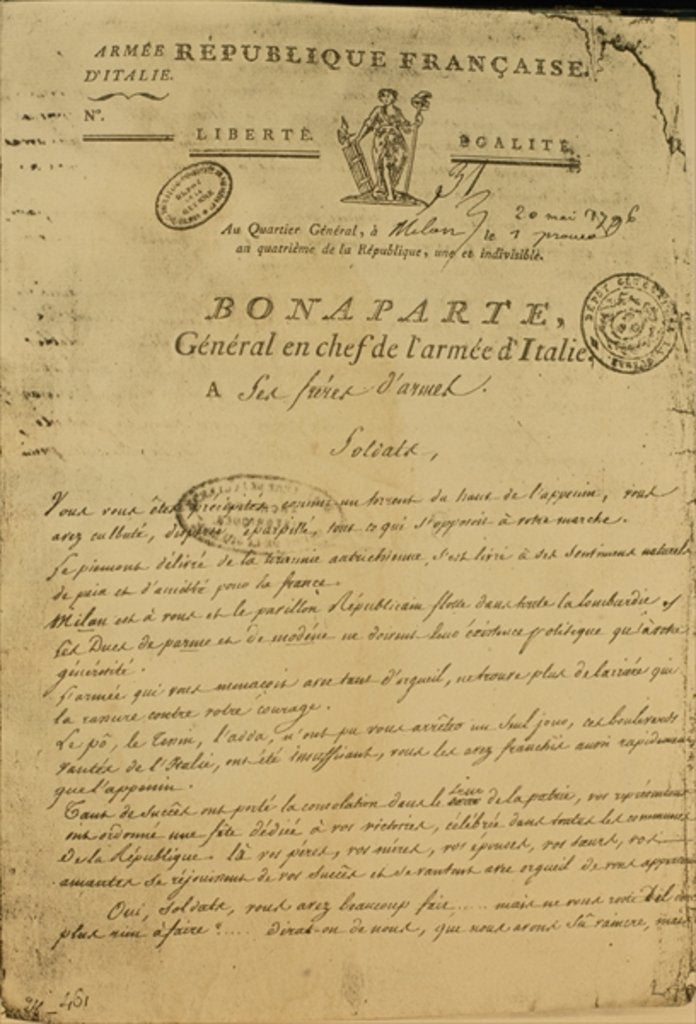 ARMÉE RÉPUBLIQUE FRANÇAISE.
D'ITALIE.
N°.
LIBERTÉ. EGALITÉ,
31
Au Quartier Général, à Milan le 1 prairial
20 mai 1796
an quatrième de la République, une et indivisible.
BONAPARTE,
Général en chef de l'armée d'Italie,
A Ses frères d'armes.
Soldats,
Vous vous êtes précipités, comme un torrent du haut de l'appenin, vous
avez culbuté, dispersé, éparpillé, tout ce qui s'opposoit à votre marche.
Le piemont délivré de la tirannie autrichienne, s'est livré à ses sentimens naturels
de paix et d'amitié pour la france.
Milan est à vous et le pavillon Républicain flotte dans toute la lombardie
Les Ducs de parme et de modéne ne doivent leur existence politique qu'à votre
générosité.
L'armée qui vous menaçoit avec tant d'orgueil, ne trouve plus de barriére qui
la rassure contre votre courage.
Le pô, le Tesin, l'adda, n'ont pu vous arrêter un seul jour, ces boulevards
vantés de l'Italie, ont été insuffisant, vous les avez franchis aussi rapidement
que l'appenin.
Tant de succès ont porté la consolation dans le sein de la patrie, vos représentans
ont ordonné une fête dédiée à vos victoires, célébrée dans toutes les communes
De la République. là vos péres, vos méres, vos épouses, vos sœurs, vos
amantes se réjouissent de vos succès et se vantent avec orgueil de vous appartenir
Oui, soldats, vous avez beaucoup fait..... mais ne vous reste t'il donc
plus rien à faire ?..... Dirat-on de nous, que nous avons sû vaincre, mais